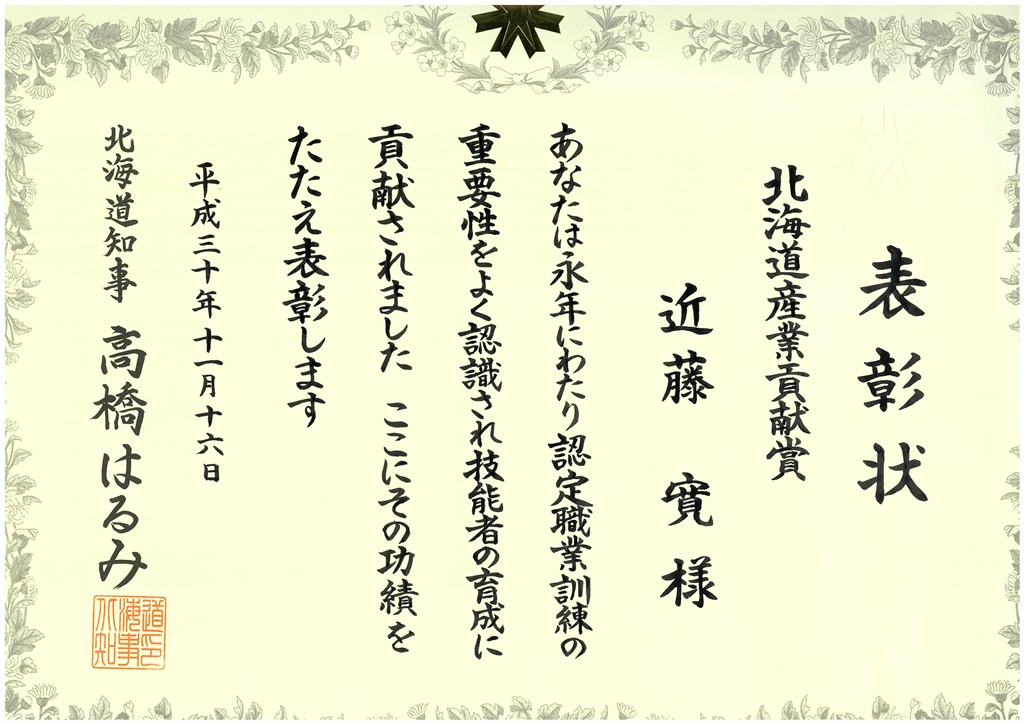 表彰状
北海道産業貢献賞
近藤 寛様
あなたは永年にわたり認定職業訓練の
重要性をよく認識され技能者の育成に
貢献されました ここにその功績を
たたえ表彰します
平成三十年十一月十六日
北海道知事 高橋はるみ
北海道知事印